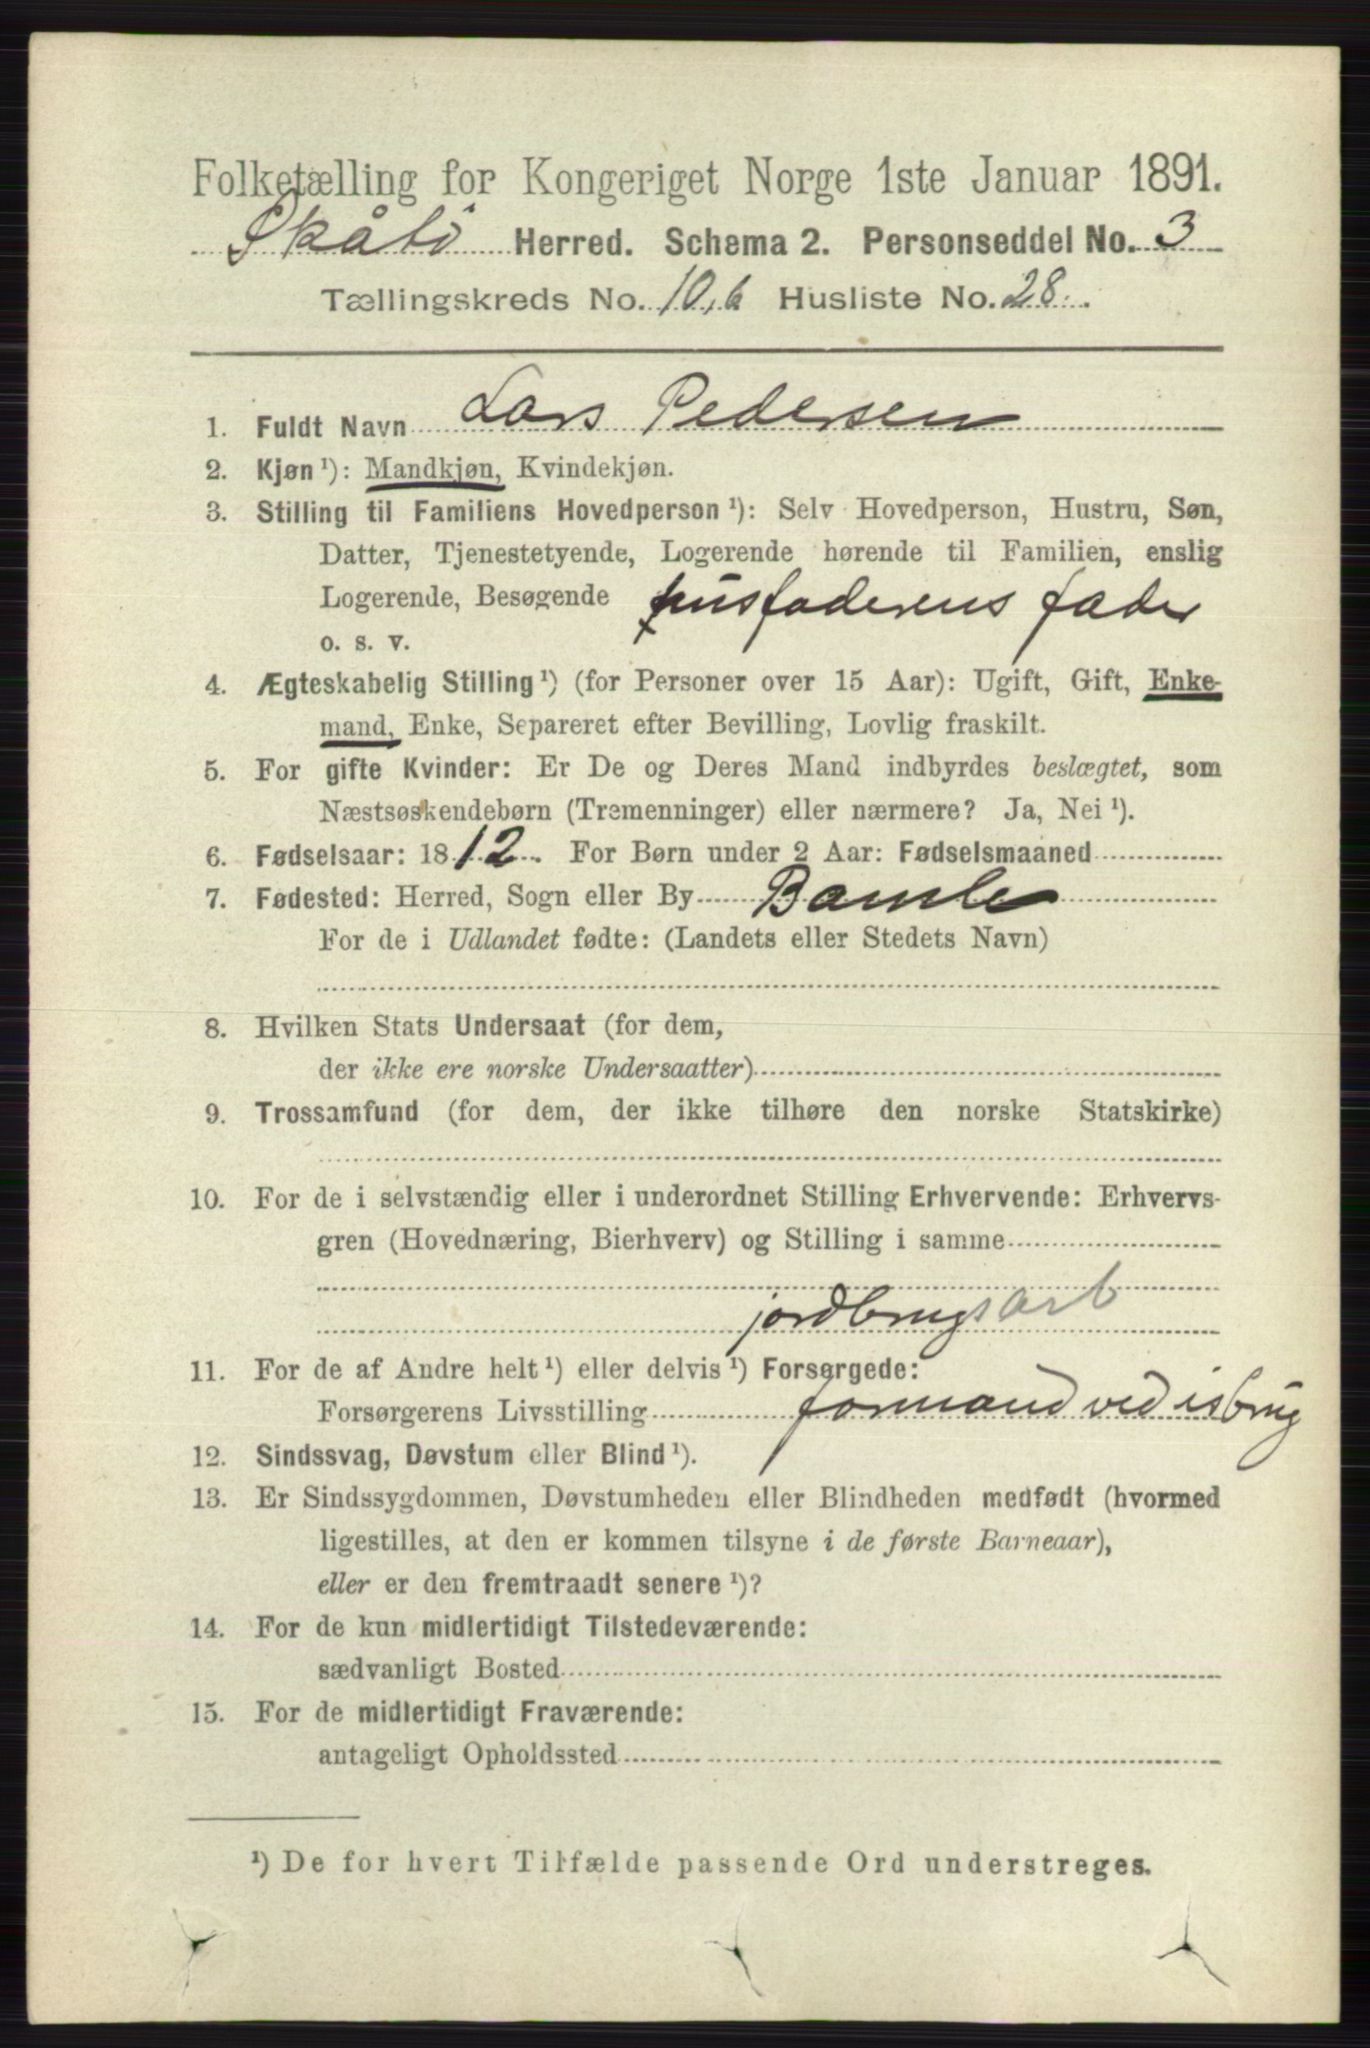 Folketælling for Kongeriget Norge 1ste Januar 1891.
Skåtö Herred. Schema 2. Personseddel No. 3
Tællingskreds No. 10,b Husliste No. 28.
1. Fuldt Navn Lars Pedersen
2. Kjøn ¹): Mandkjøn, Kvindekjøn.
3. Stilling til Familiens Hovedperson ¹): Selv Hovedperson, Hustru, Søn,
Datter, Tjenestetyende, Logerende hørende til Familien, enslig
Logerende, Besøgende husfaderens fader
o. s. v.
4. Ægteskabelig Stilling ¹) (for Personer over 15 Aar): Ugift, Gift, Enke-
mand, Enke, Separeret efter Bevilling, Lovlig fraskilt.
5. For gifte Kvinder: Er De og Deres Mand indbyrdes beslægtet, som
Næstsøskendebørn (Tremenninger) eller nærmere? Ja, Nei ¹).
6. Fødselsaar: 1812. For Børn under 2 Aar: Fødselsmaaned
7. Fødested: Herred, Sogn eller By Bamle
For de i Udlandet fødte: (Landets eller Stedets Navn)
8. Hvilken Stats Undersaat (for dem,
der ikke ere norske Undersaatter)
9. Trossamfund (for dem, der ikke tilhøre den norske Statskirke)
10. For de i selvstændig eller i underordnet Stilling Erhvervende: Erhvervs-
gren (Hovednæring, Bierhverv) og Stilling i samme
jordbrugsarb
11. For de af Andre helt ¹) eller delvis ¹) Forsørgede:
Forsørgerens Livsstilling formand ved isbrug
12. Sindssvag, Døvstum eller Blind ¹).
13. Er Sindssygdommen, Døvstumheden eller Blindheden medfødt (hvormed
ligestilles, at den er kommen tilsyne i de første Barneaar),
eller er den fremtraadt senere ¹)?
14. For de kun midlertidigt Tilstedeværende:
sædvanligt Bosted
15. For de midlertidigt Fraværende:
antageligt Opholdssted
¹) De for hvert Tilfælde passende Ord understreges.